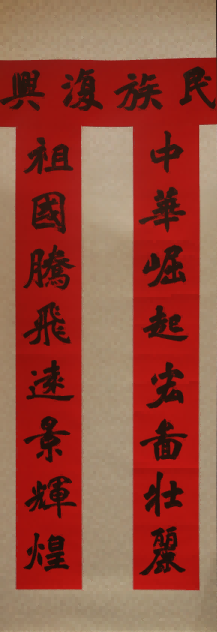 民族復興
中華崛起宏啚壯麗
祖國騰飛遠景輝煌